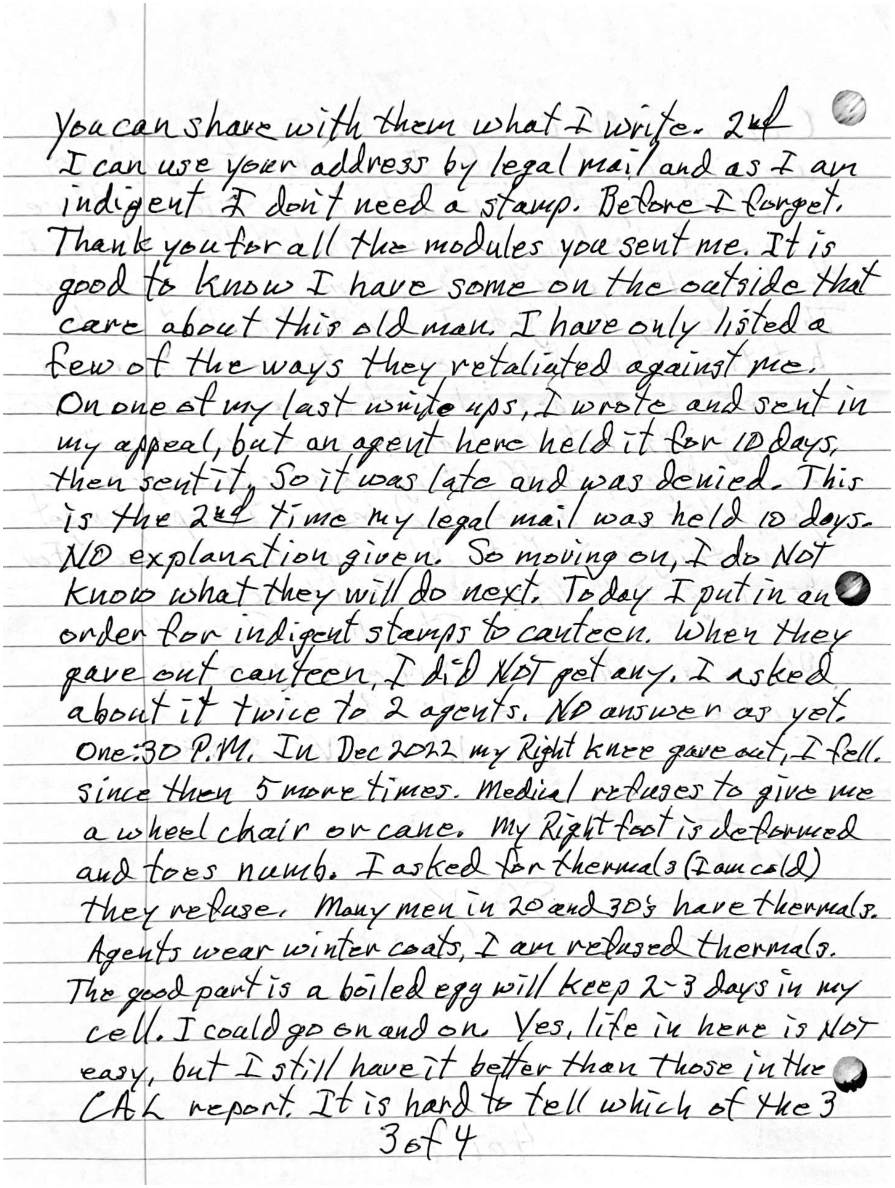 you can share with them what I write. 2nd
I can use your address by legal mail and as I am
indigent I don't need a stamp. Before I forget.
Thank you for all the modules you sent me. It is
good to know I have some on the outside that
care about this old man. I have only listed a
few of the ways they retaliated against me.
On one of my last write ups, I wrote and sent in
my appeal, but an agent here held it for 10 days,
then sent it, So it was late and was denied. This
is the 2nd time my legal mail was held 10 days.
NO explanation given. So moving on, I do NOT
know what they will do next. Today I put in an
order for indigent stamps to canteen. When they
gave out canteen, I did NOT get any. I asked
about it twice to 2 agents. NO answer as yet.
One:30 P.M. In Dec 2022 my Right knee gave out, I fell.
since then 5 more times. Medical refuses to give me
a wheel chair or cane. My Right foot is deformed
and toes numb. I asked for thermals (I am cold)
they refuse. Many men in 20 and 30's have thermals.
Agents wear winter coats, I am refused thermals.
The good part is a boiled egg will keep 2-3 days in my
cell. I could go on and on. Yes, life in here is NOT
easy, but I still have it better than those in the
CAL report. It is hard to tell which of the 3
3 of 4